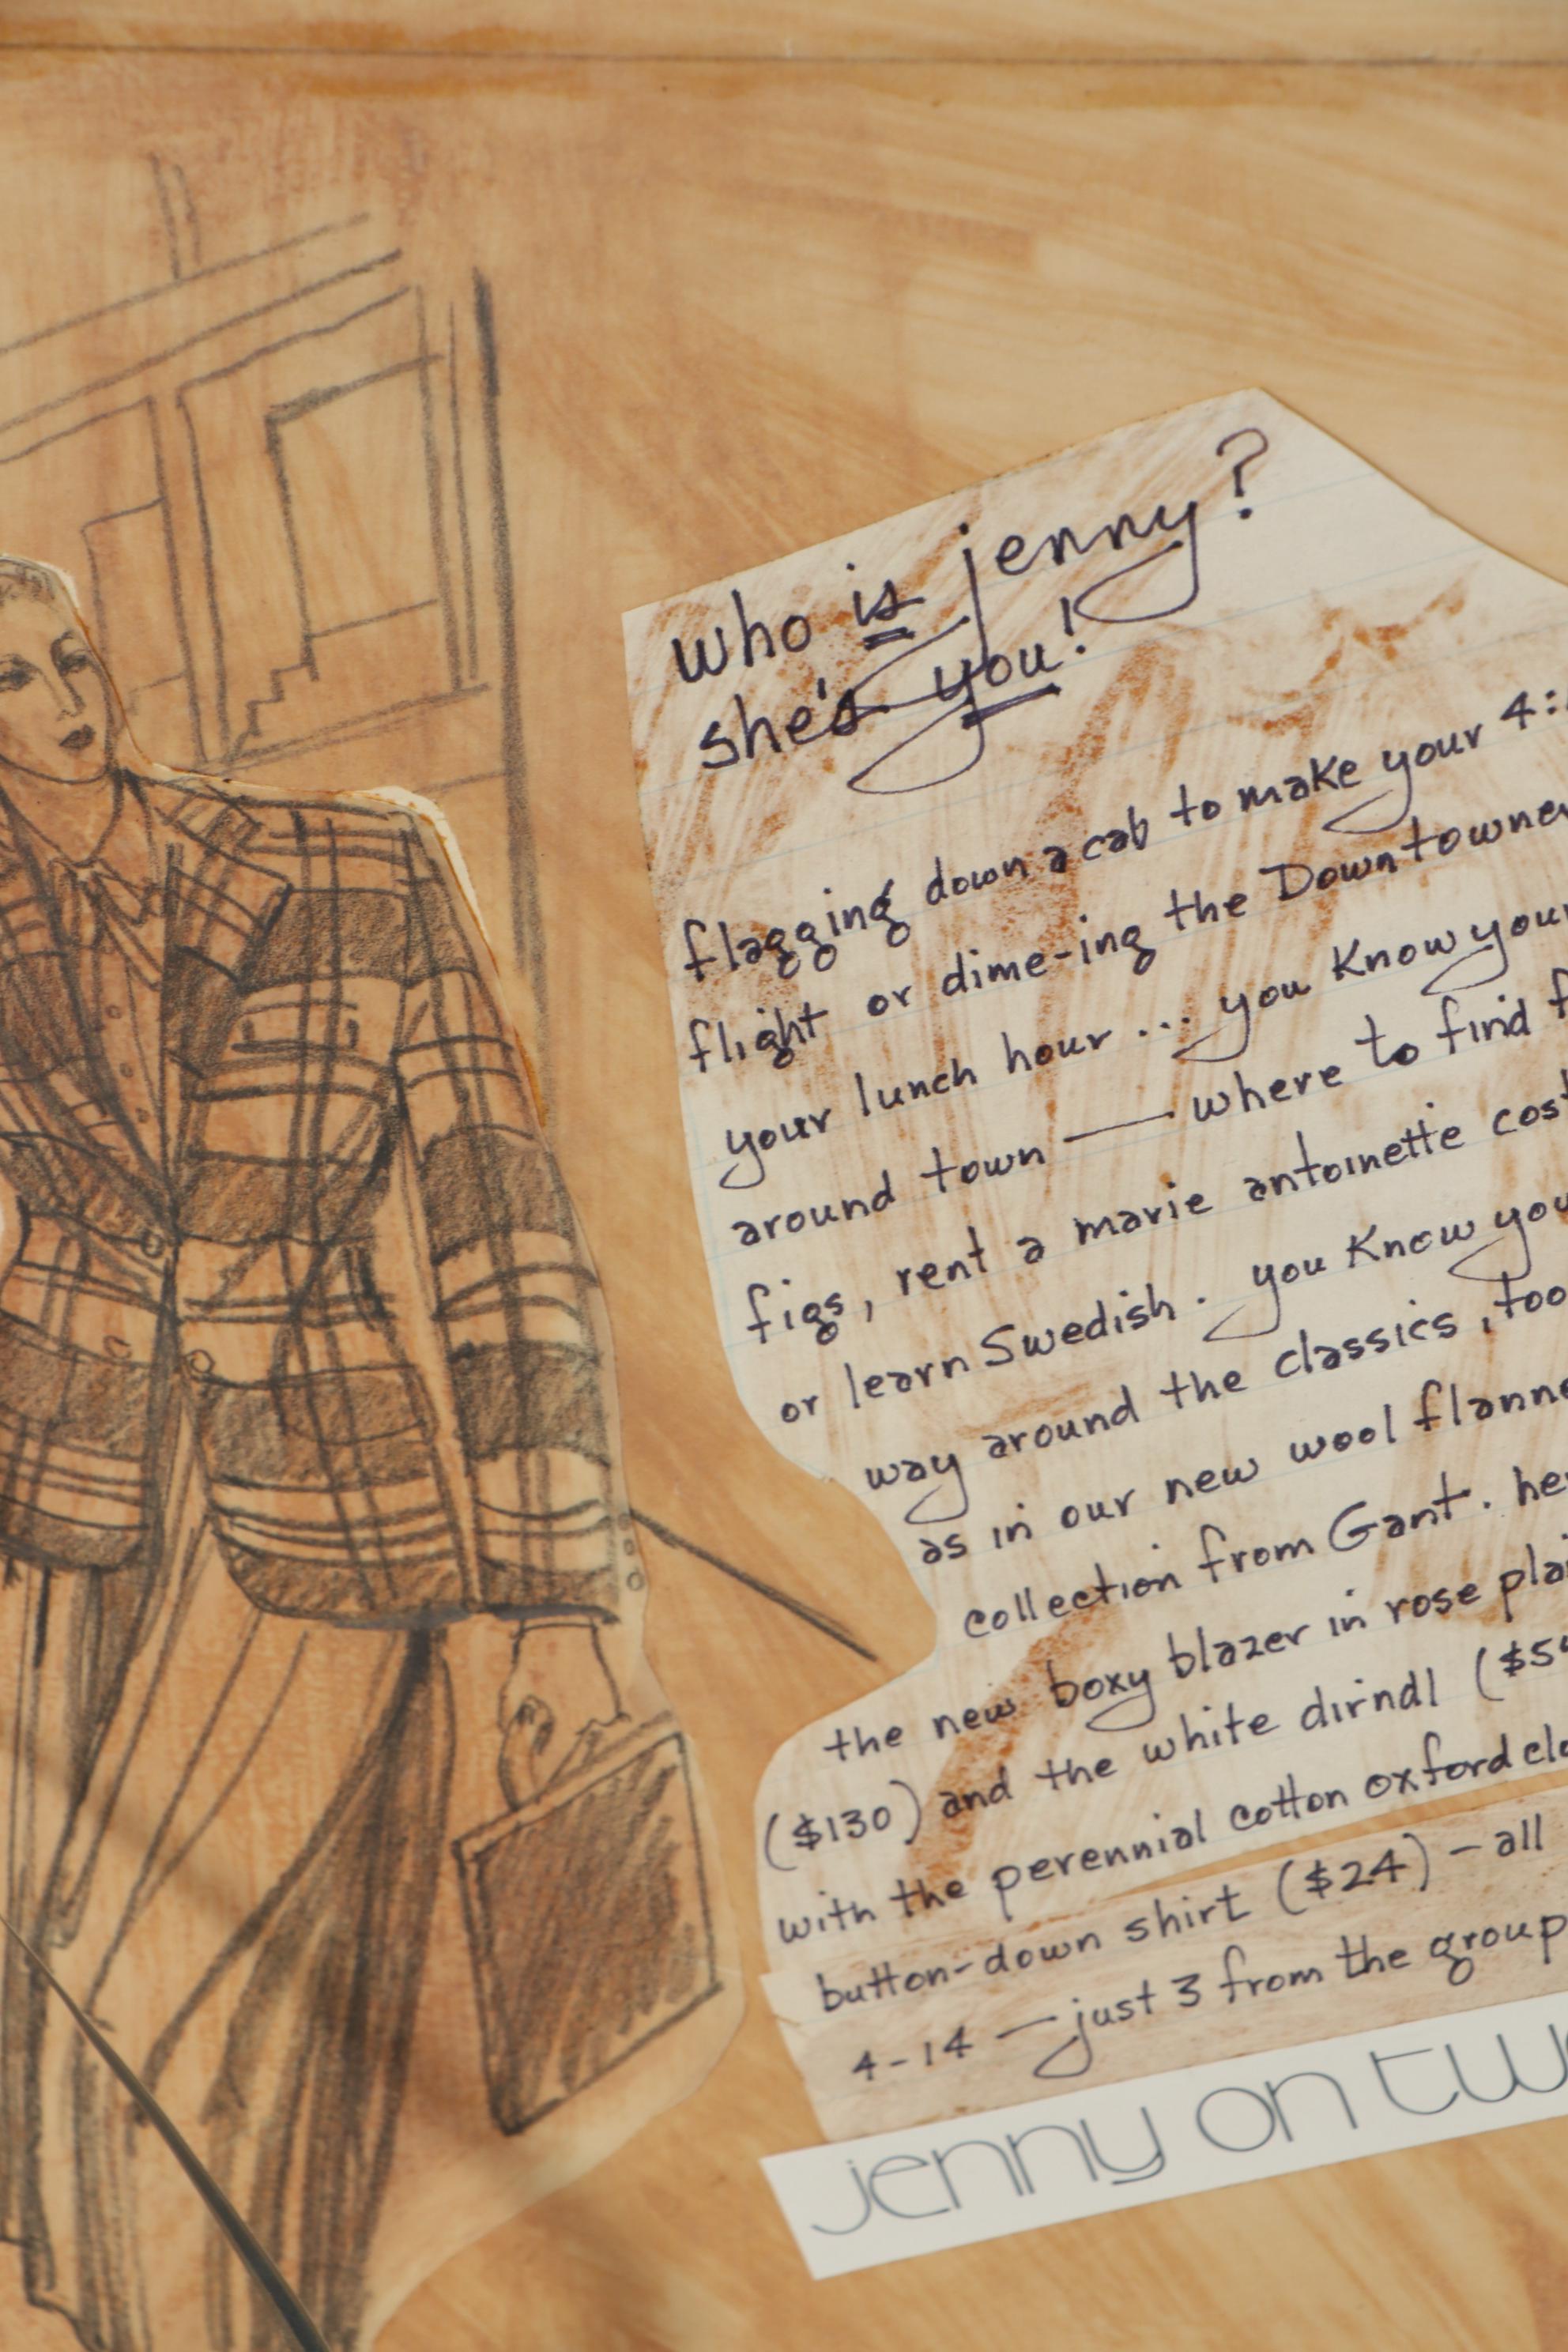 who is jenny?
she's you!
flagging down a cab to make your 4:
flight or dime-ing the Downtowne
your lunch hour... you know you
around town — where to find f
figs, rent a marie antoinette cos
or learn Swedish. you know you
way around the classics, too
as in our new wool flanne
collection from Gant. he
the new boxy blazer in rose plai
($130) and the white dirndl ($5
with the perennial cotton oxford clo
button-down shirt ($24) - all
4-14 — just 3 from the group
jenny on tw